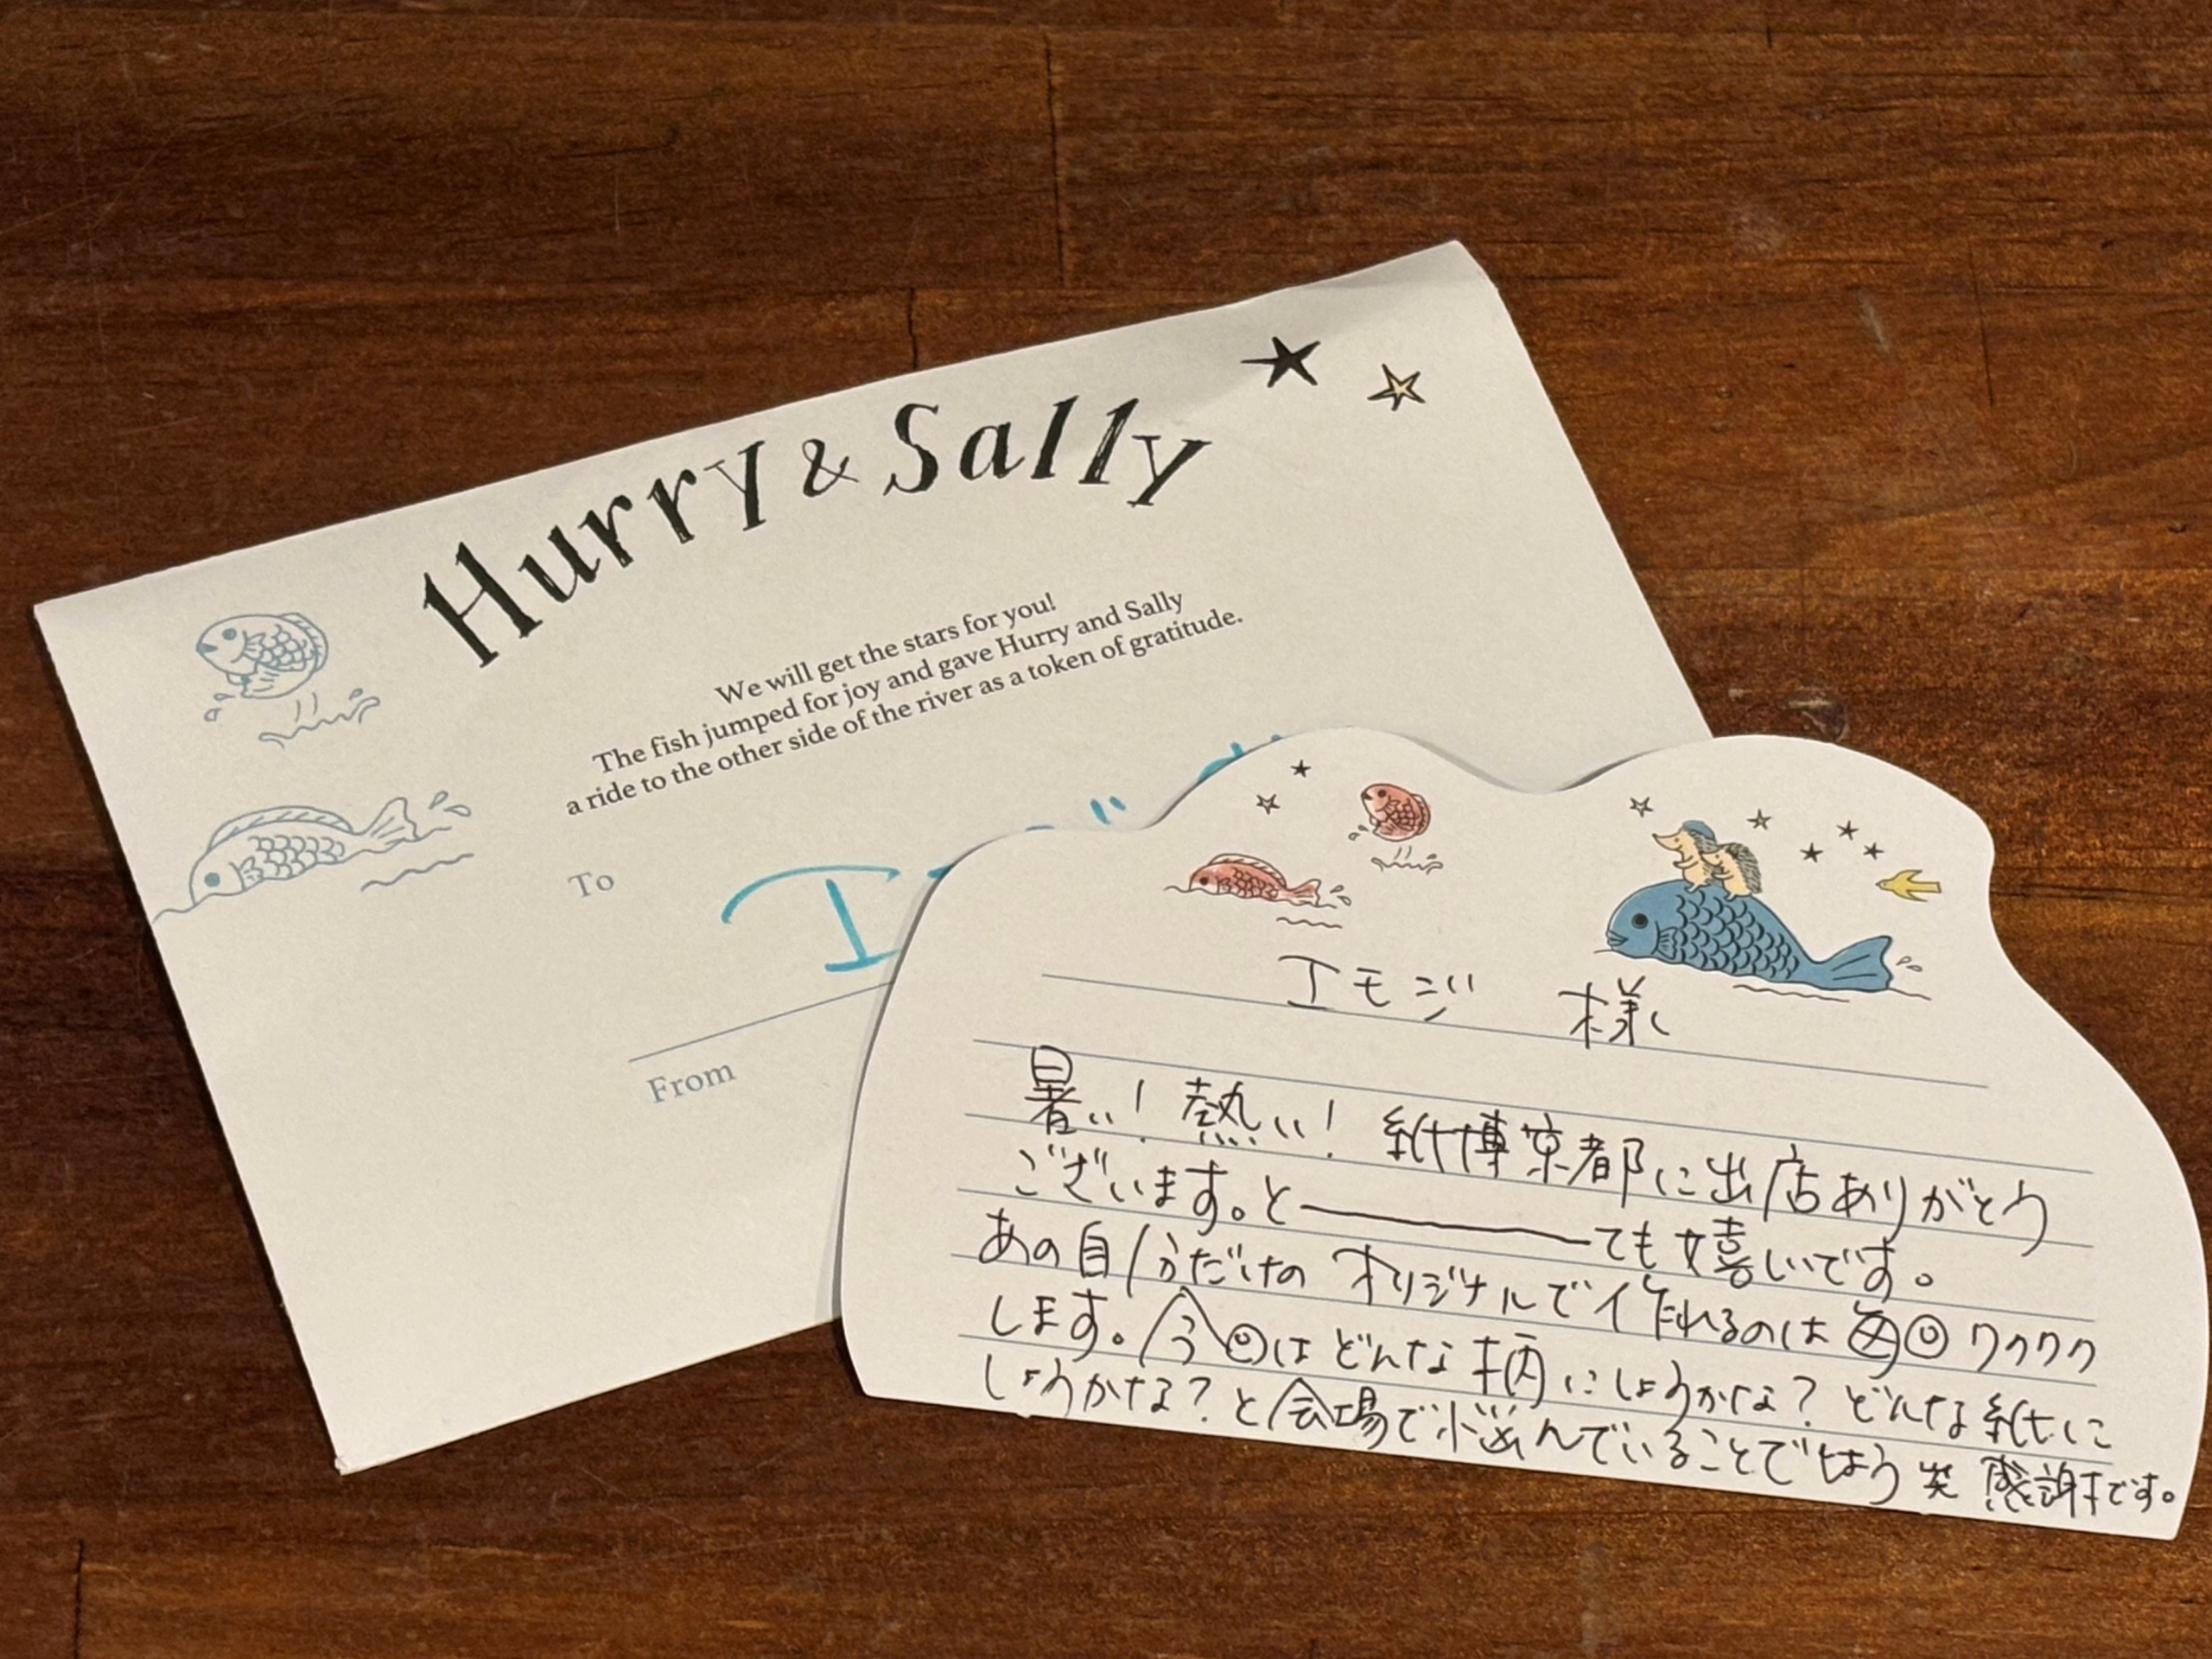 Hurry & Sally
We will get the stars for you!
The fish jumped for joy and gave Hurry and Sally
a ride to the other side of the river as a token of gratitude.
To
エ
From
エモジ 様
暑い！熱い！紙博京都に出店ありがとう
ございます。と――――ても嬉しいです。
あの自分だけのオリジナルで作れるのは毎回ワクワク
します。今回はどんな柄にしようかな？どんな紙に
しようかな？と会場で悩んでいることでしょう 笑 感謝です。